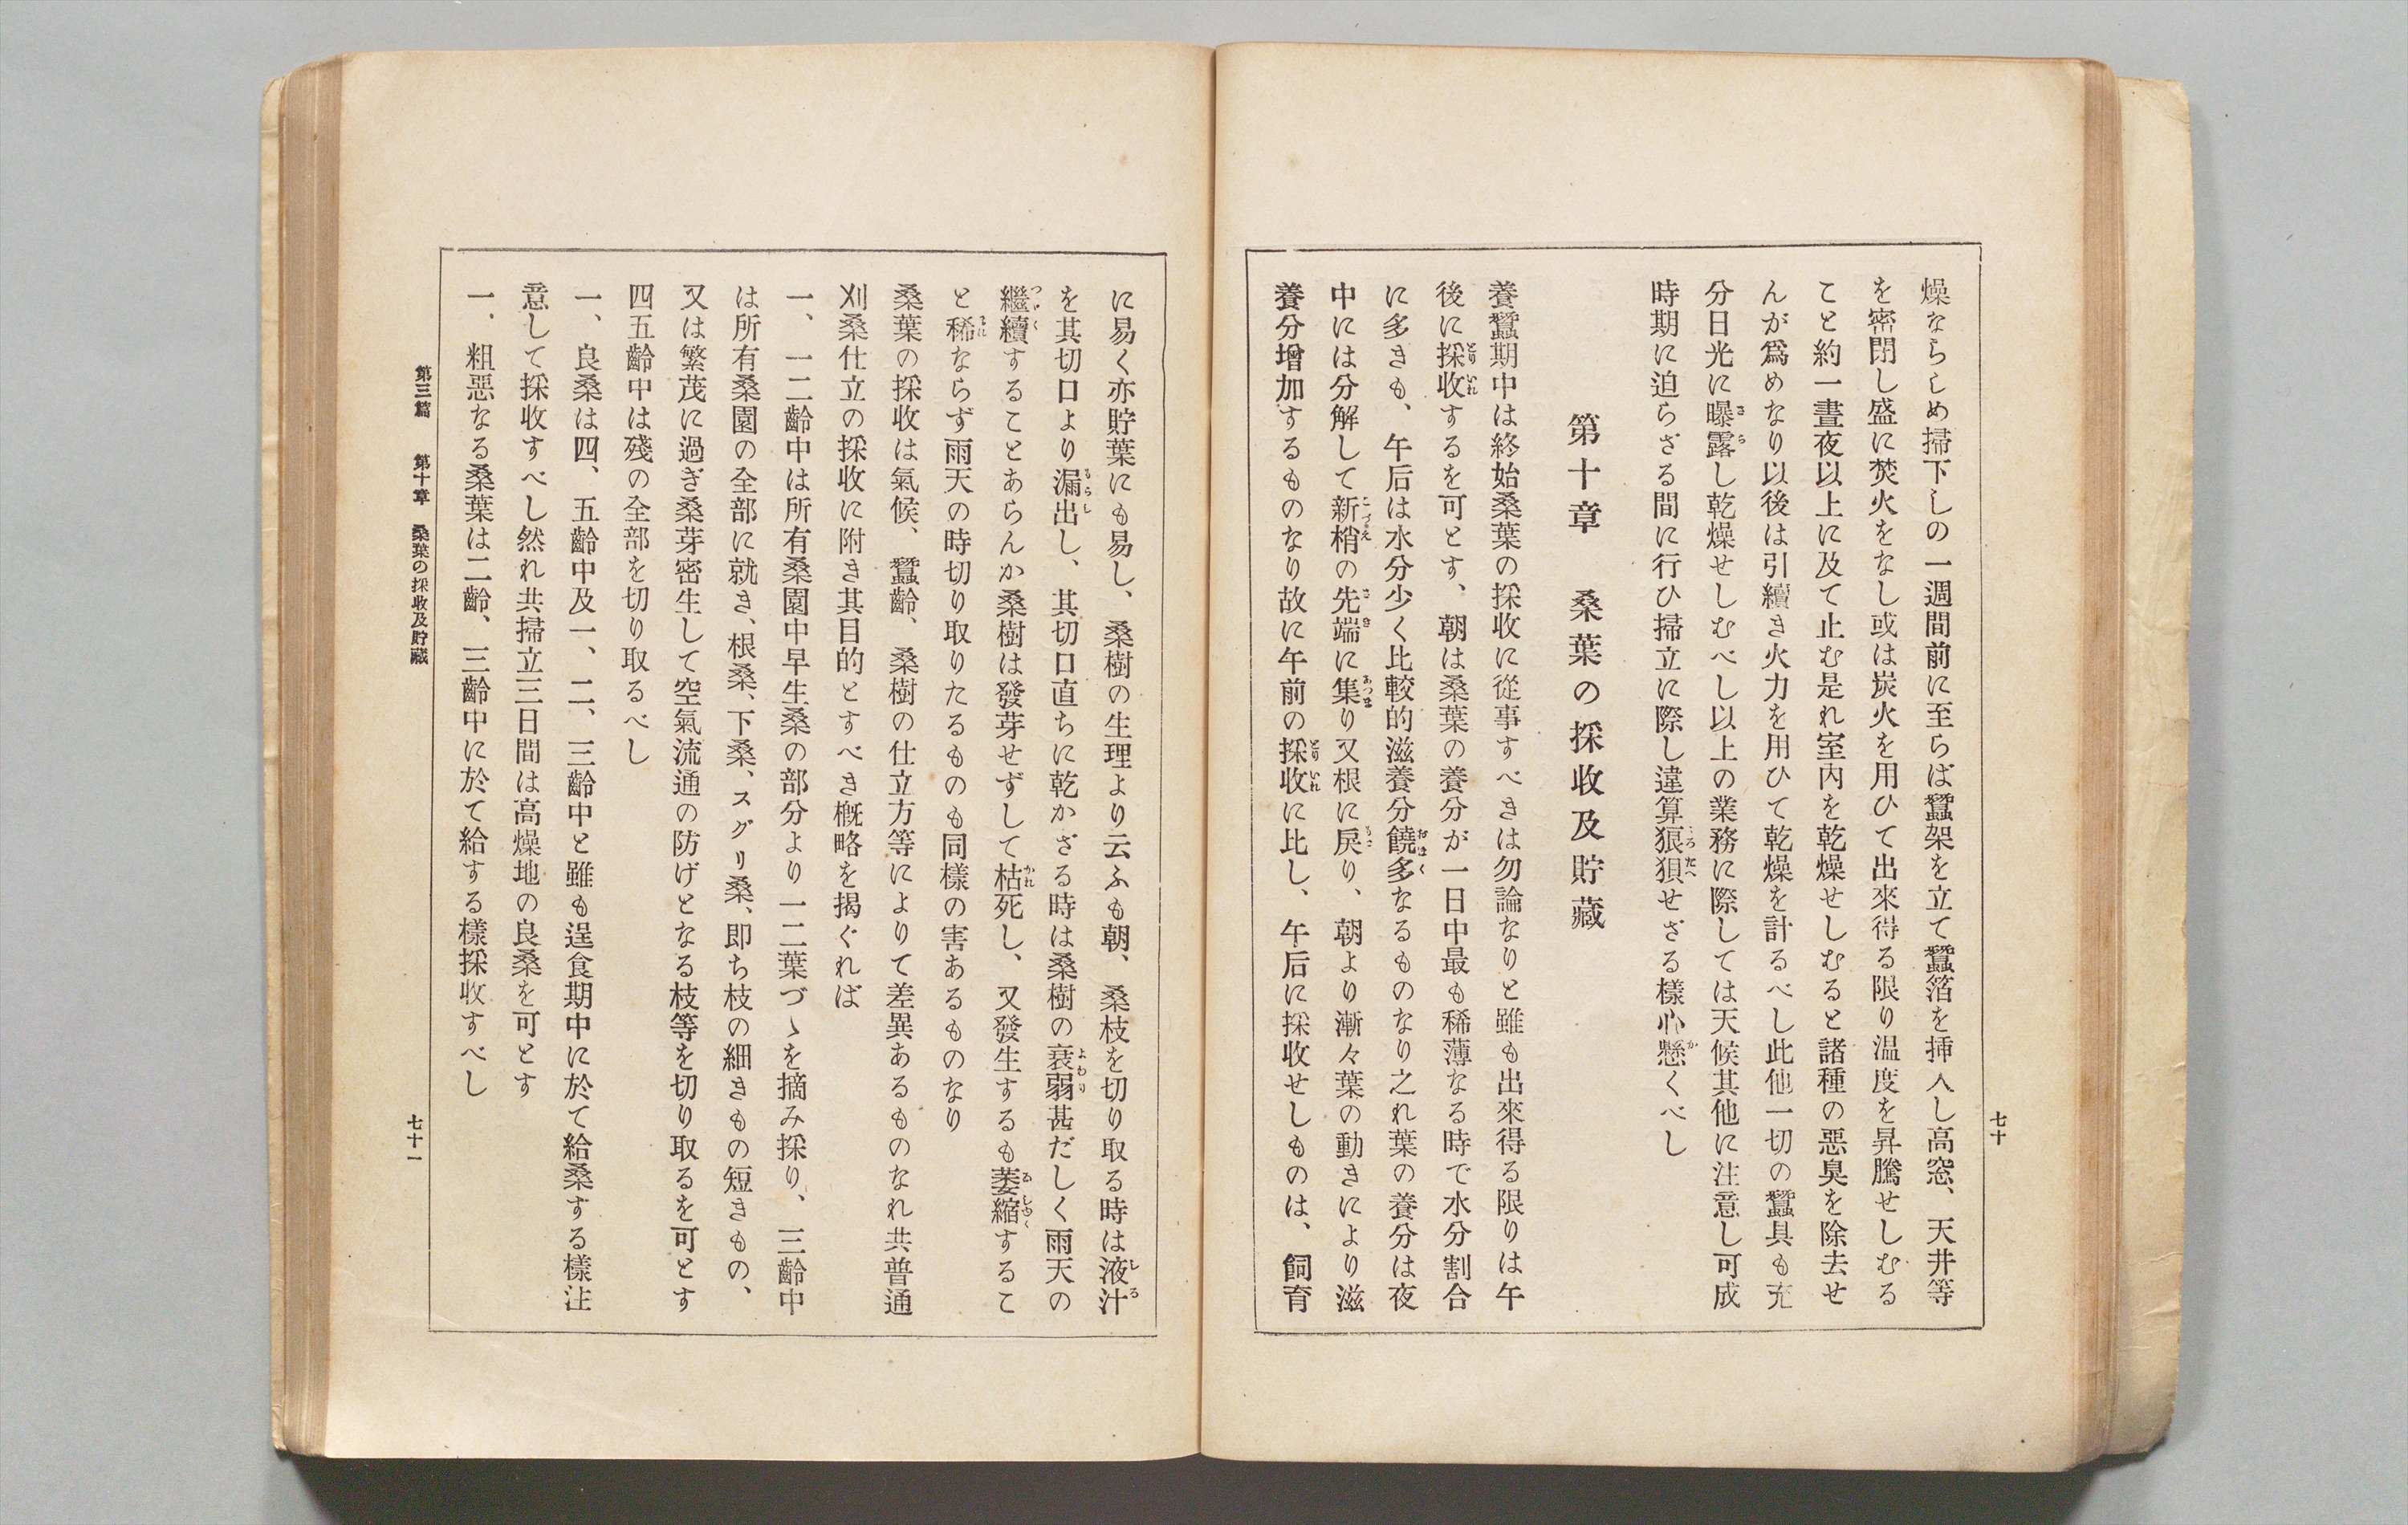 七十
燥ならしめ掃下しの一週間前に至らば蠶架を立て蠶箔を挿入し高窓、天井等
を密閉し盛に焚火をなし或は炭火を用ひて出來得る限り温度を昇騰せしむる
こと約一晝夜以上に及て止む是れ室内を乾燥せしむると諸種の惡臭を除去せ
んが爲めなり以後は引續き火力を用ひて乾燥を計るべし此他一切の蠶具も充
分日光に曝露し乾燥せしむべし以上の業務に際しては天候其他に注意し可成
時期に迫らざる間に行ひ掃立に際し違算狼狽せざる樣心懸くべし
第十章　桑葉の採收及貯藏
養蠶期中は終始桑葉の採收に從事すべきは勿論なりと雖も出來得る限りは午
後に採收するを可とす、朝は桑葉の養分が一日中最も稀薄なる時で水分割合
に多きも、午后は水分少く比較的滋養分饒多なるものなり之れ葉の養分は夜
中には分解して新梢の先端に集り又根に戻り、朝より漸々葉の動きにより滋
養分增加するものなり故に午前の採收に比し、午后に採收せしものは、飼育
に易く亦貯葉にも易し、桑樹の生理より云ふも朝、桑枝を切り取る時は液汁
を其切口より漏出し、其切口直ちに乾かざる時は桑樹の衰弱甚だしく雨天の
繼續することあらんか桑樹は發芽せずして枯死し、又發生するも萎縮するこ
と稀ならず雨天の時切り取りたるものも同樣の害あるものなり
桑葉の採收は氣候、蠶齡、桑樹の仕立方等によりて差異あるものなれ共普通
刈桑仕立の採收に附き其目的とすべき槪略を揭ぐれば
一、一二齡中は所有桑園中早生桑の部分より一二葉づゝを摘み採り、三齡中
は所有桑園の全部に就き、根桑、下桑、スグリ桑、即ち枝の細きもの短きもの、
又は繁茂に過ぎ桑芽密生して空氣流通の防げとなる枝等を切り取るを可とす
四五齡中は殘の全部を切り取るべし
一、良桑は四、五齡中及一、二、三齡中と雖も逞食期中に於て給桑する樣注
意して採收すべし然れ共掃立三日間は高燥地の良桑を可とす
一、粗惡なる桑葉は二齡、三齡中に於て給する樣採收すべし
第三篇　第十章　桑葉の採收及貯藏
七十一